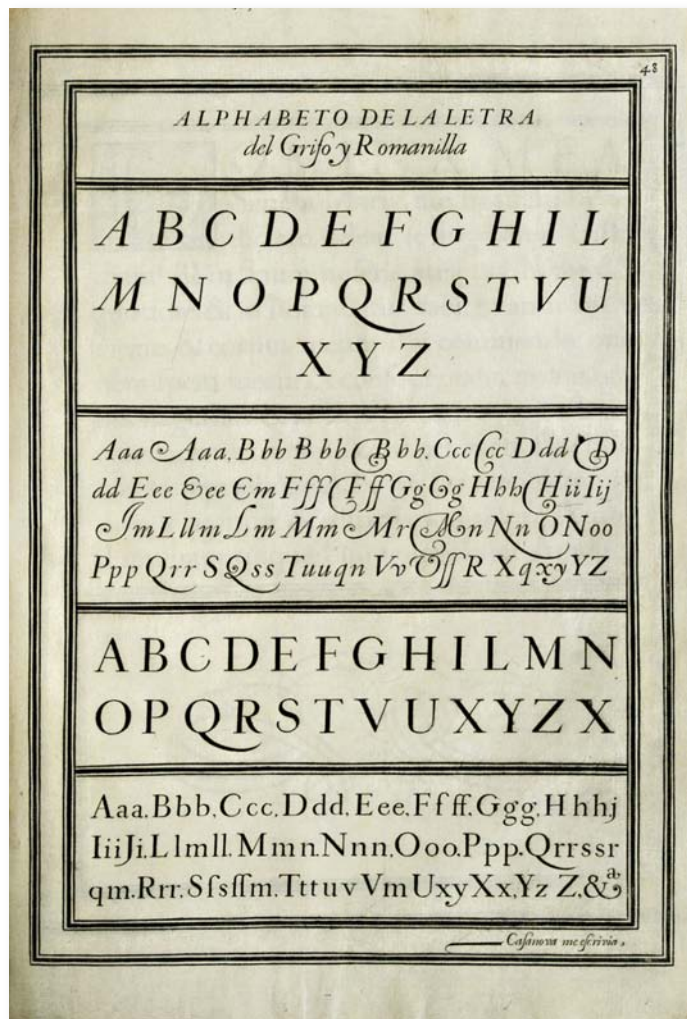 48
ALPHABETO DE LA LETRA
del Grifo y Romanilla
A B C D E F G H I L
M N O P Q R S T V U
X Y Z
Aaa Aaa. Bbb Bbb Bbb. Ccc Ccc Ddd D
dd Eee Eee Em Fff Fff Gg Gg Hhh Hii Iij
Jm Lllm Lm Mm Mr Mn Nn ONoo
Ppp Qrr S Qss Tuuqn Vv Uſſ R Xqxy YZ
A B C D E F G H I L M N
O P Q R S T V U X Y Z X
Aaa. Bbb. Ccc. Ddd. Eee. Ffff. Ggg. Hhhj
IiiJi. Llmll. Mmn. Nnn. Ooo. Ppp. Qrrssr
qm. Rrr. Sſsſſm. Tttuv Vm Uxy Xx. Yz Z. &a
Caſanova me eſcrivia.